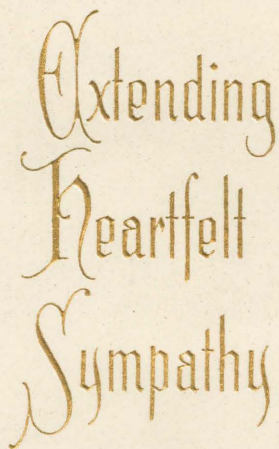 Extending
Heartfelt
Sympathy